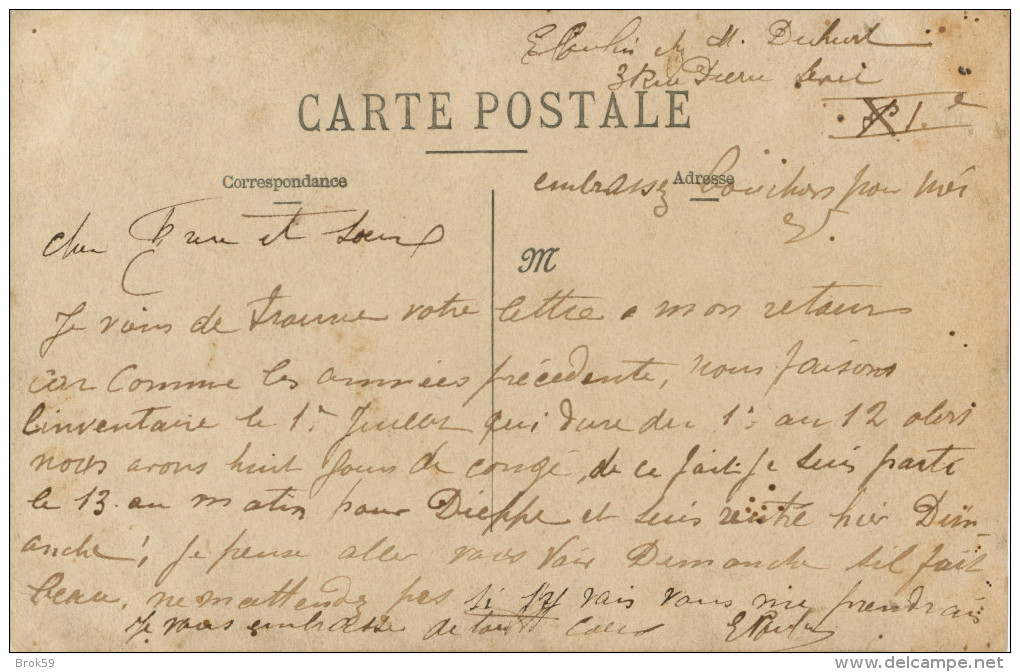 E Poulin ch M. Duhurt
3 Rue Pierre
P 1.
CARTE POSTALE
Correspondance
Adresse
embrassez pour moi
E P.
M
cher Frere et Soeur
Je viens de trouver votre lettre a mon retour
car comme les années précédente, nous faisons
l'inventaire le 1r Juillet qui dure du 1r au 12 alors
nous avons huit jours de congé, de ce fait je suis parti
le 13 au matin pour Dieppe et suis rentré hier Dim-
anche! je pense aller vous voir Dimanche sil fait
beau, ne mattendez pas si jy vais vous me prendrais
Je vous embrasse de tout coeur E Poulin
Brok59
www.delcampe.net